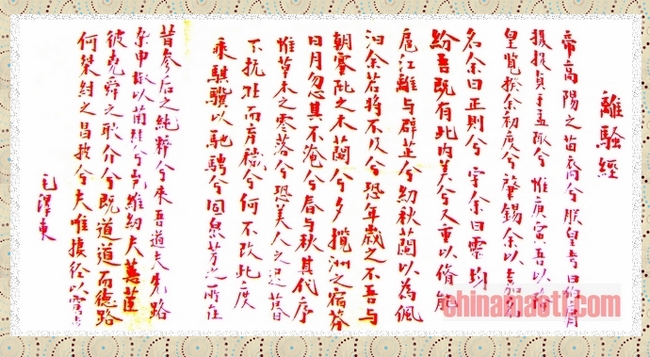 離騷經
帝高陽之苗裔兮朕皇考曰伯庸
攝提貞于孟陬兮惟庚寅吾以降
皇覽揆余初度兮肇錫余以嘉
名余曰正則兮字余曰靈均
紛吾既有此内美兮又重以脩能
扈江離与辟芷兮紉秋蘭以為佩
汩余若將不及兮恐年歲之不吾与
朝搴阰之木蘭兮夕攬洲之宿莽
日月忽其不淹兮春与秋其代序
惟草木之零落兮恐美人之遲暮
不抚壯而弃穢兮何不改此度
乘騏驥以馳騁兮固眾芳之所在
昔參后之純粹兮來吾道夫先路
杂申椒以菌桂兮豈維紉夫蕙茝
彼尧舜之耿介兮既道道而德路
何桀紂之昌披兮夫唯捷徑以窘
毛澤東
chinamaoti.com